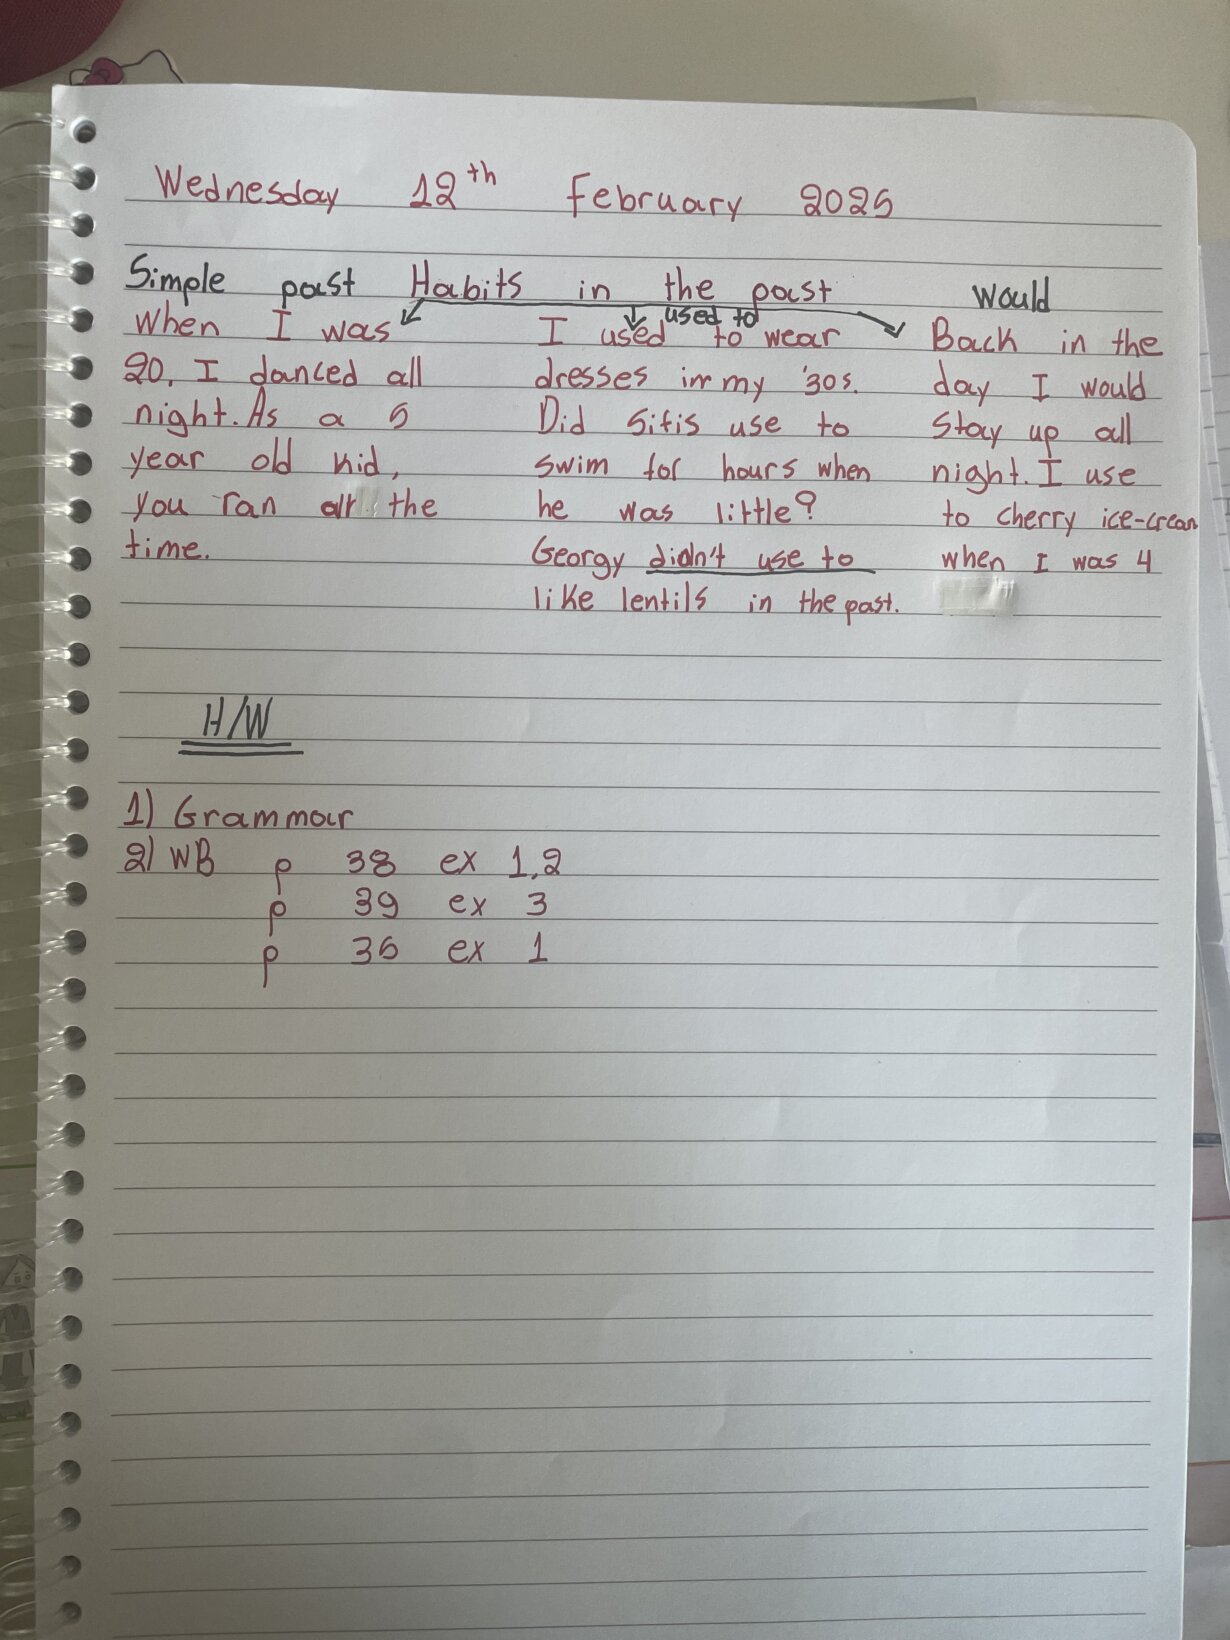 Wednesday 12th February 2025
Simple past Habits in the past would
used to
When I was
20, I danced all
night. As a 5
year old kid,
you ran all the
time.
I used to wear
dresses in my '30s.
Did Sifis use to
swim for hours when
he was little?
Georgy didn't use to
like lentils in the past.
Back in the
day I would
stay up all
night. I use
to cherry ice-cream
when I was 4
H/W
1) Grammar
2) WB p 38 ex 1,2
p 39 ex 3
p 36 ex 1